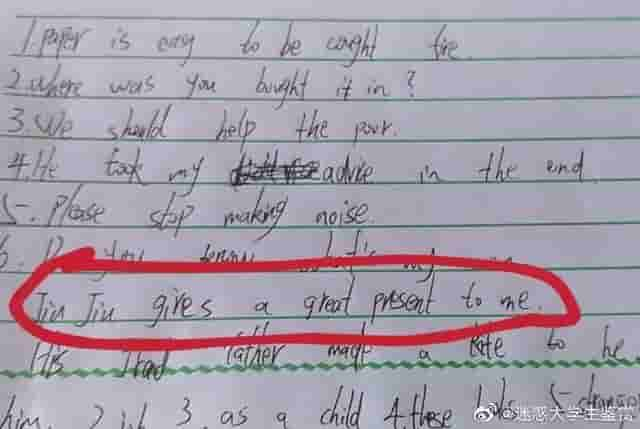 1. Paper is easy to be caught fire.
2. Where was you bought it in?
3. We should help the poor.
4. He took my advice in the end.
5. Please stop making noise.
6. Do you know what's my
Jiu Jiu gives a great present to me.
His father made a kite to he
him. 2. 3. as a child 4. these 5.
@迷惑大学生鉴赏